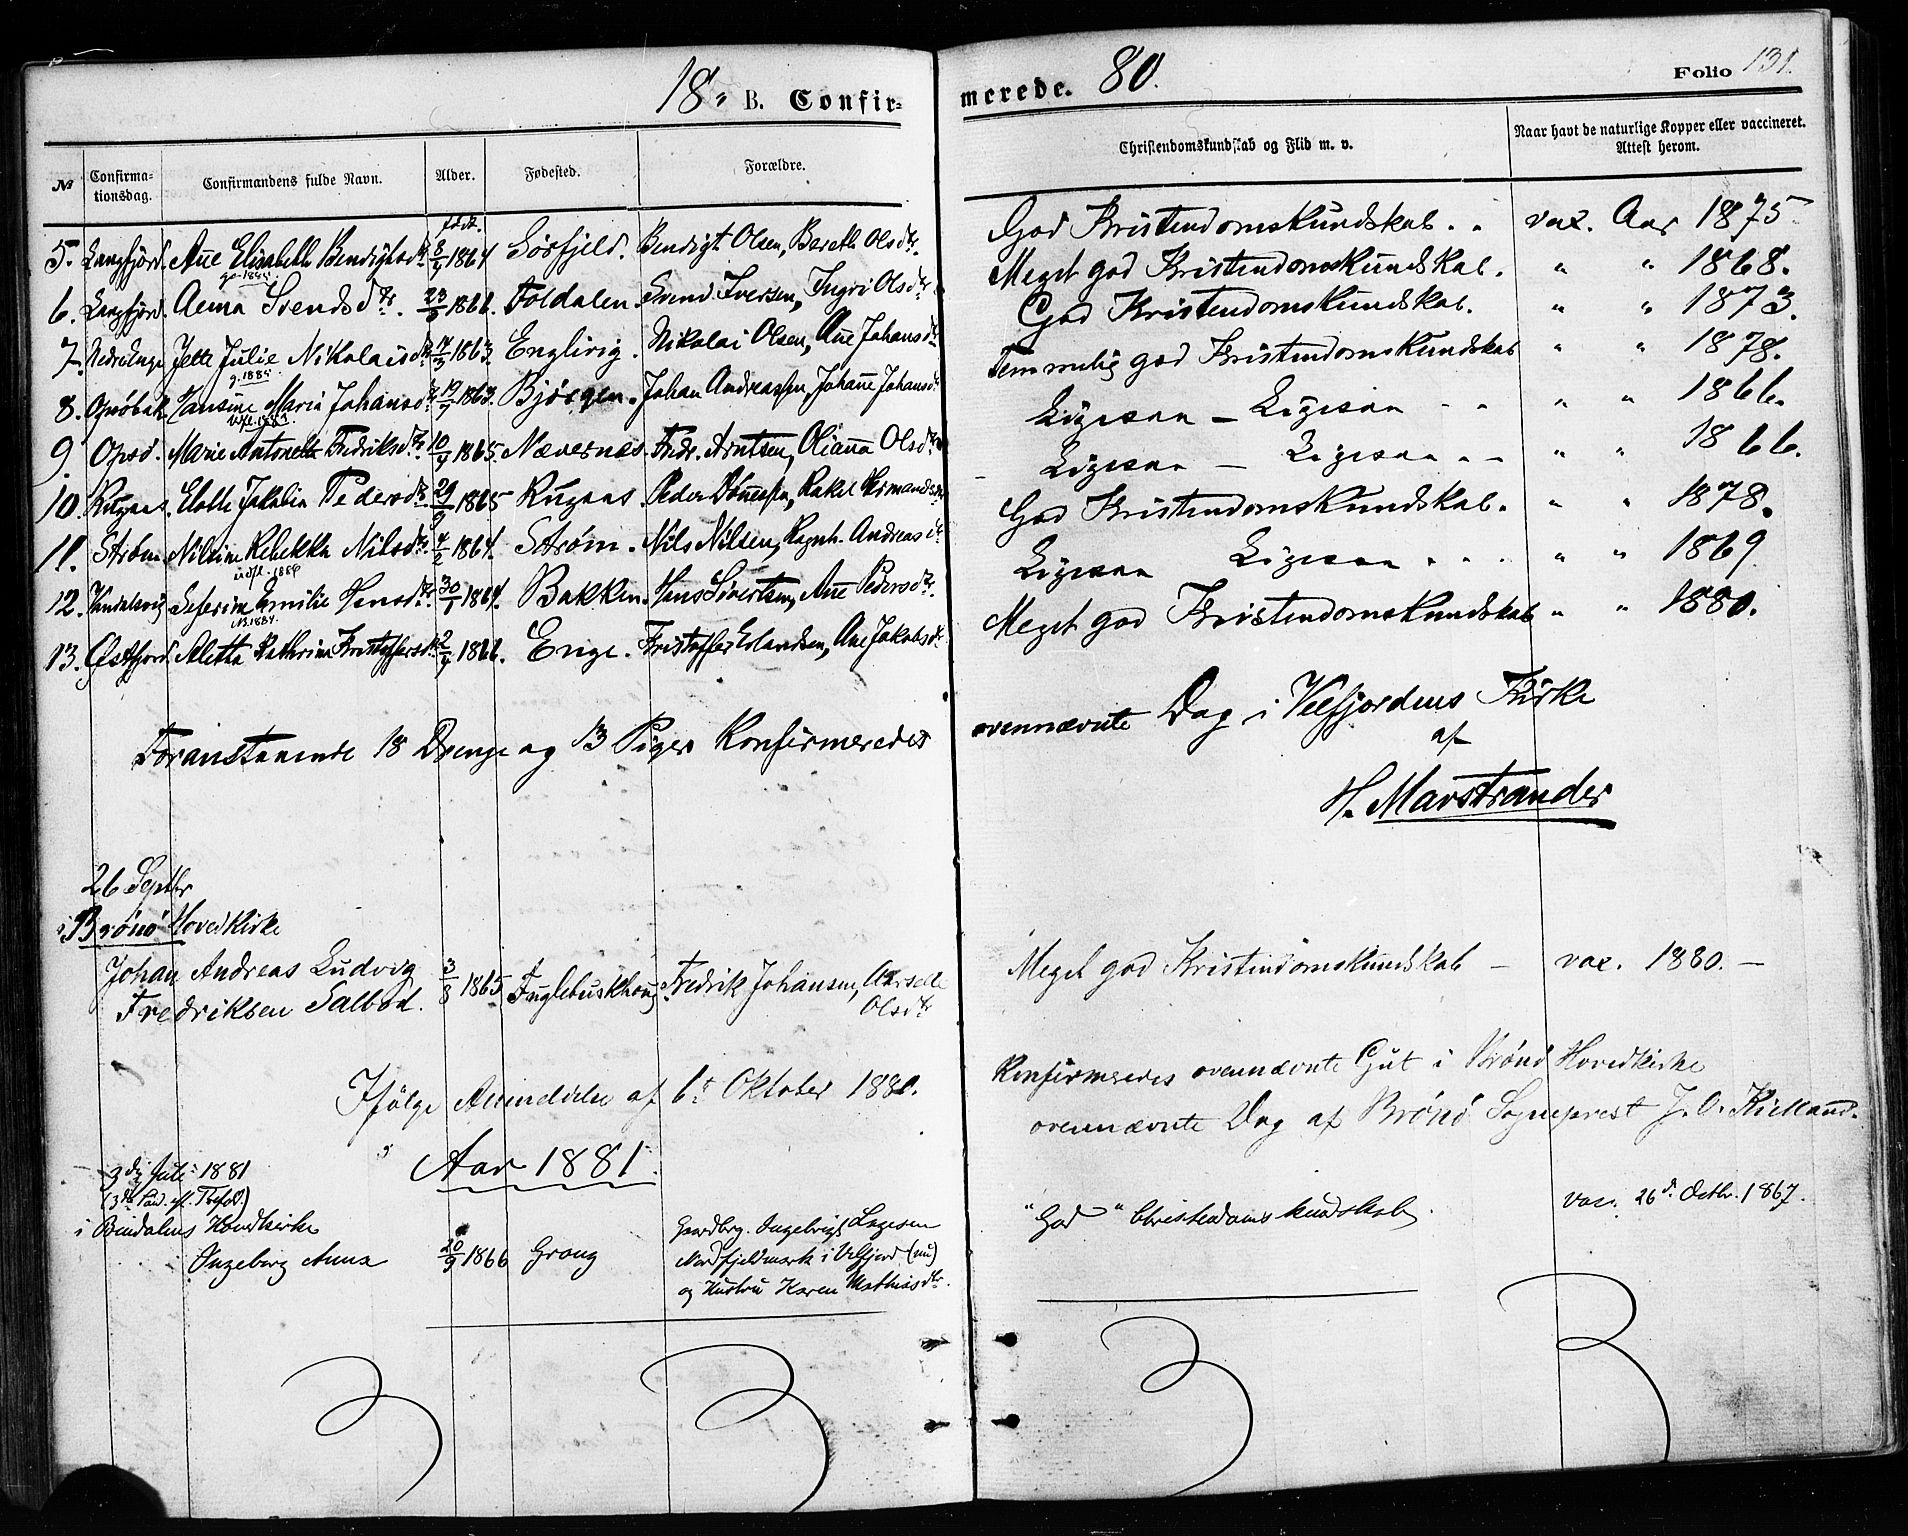 18 B. Confir- merede. 80. Folio 131.
№ Confirma-tionsdag. Confirmandens fulde Navn. Alder. Fødested. Forældre. Christendomskundskab og Flid m. v. Naar havt de naturlige Kopper eller vaccineret. Attest herom.
født
5. Langfjord. Ane Elisabeth Bendigtsdtr 1864 Sørfjeld. Bendigt Olsen, Bereth Olsdtr. God Kristendomskundskab. vax. Aar 1875
6. Langfjord. Anna Svendsdtr. 23 1866. Toldalen. Svend Iversen, Ingri Olsdtr Meget god Kristendomskundskab. " " 1868.
7. Nedre Enge Jette Julie Nikolaisdtr 1863. Englirig. Nikolai Olsen, Ane Johansdtr God Kristendomskundskab. " " 1873.
g. 1885.
8. Hansine Maria Johansdtr 19 1863. Bjørgen. Johan Andreassen, Johane Johansdtr Temmelig god Kristendomskundskab " " 1878.
9. Opsd. Marie Antonette Fredriksdtr. 10 1865. Nævernes. Fredr. Arntsen, Oliana Olsdtr Ligesaa – Ligesaa " " 1866.
10. Rugaas. Elotte Jakobin Pedersdtr. 29 1865 Rugaas. Peder Dønnesen, Rakel Hermandsdtr Ligesaa – Ligesaa " " 1866.
11. Strøm Nilsine Rebekka Nilsdtr. 4/2 1864. Strøm. Nils Nilsen, Ragnh. Andreasdtr God Kristendomskundskab. " " 1878.
udfl. 1886
12. Seferine Emilie Hansdtr. 30/1 1864. Bakken. Hans Sivertsen, Ane Pedersdtr. Ligesaa Ligesaa " " 1869
13. Østfjord. Aletha Kathrina Kristoffersdtr 2 1866. Enge. Kristoffer Erlandsen, Ane Jakobsdtr Meget god Kristendomskundskab " " 1880.
Foranstaaende 18 Drenge og 13 Piger Konfirmeredes ovennævnte Dag i Velfjordens Kirke
af
H. Marstrander
26 Septbr
i Brønø Hovedkirke
Johan Andreas Ludvig 3/8 1865 Fuglebuskhaug Fredrik Johansen, Meget god Kristendomskundskab – vax. 1880. –
Fredriksen Salbod. Olsdtr
Ifølge Anmeldelse af 6te Oktober 1880. Konfirmeredes ovennævnte Gut i Brønø Hovedkirke
ovennævnte Dag af Brønø Sogneprest J. O. Kielland.
Aar 1881.
3die Juli 1881
(3die Sød. ef. Trefold.)
i Bindalens Hovedkirke
Ingeborg Anna 20/9 1866 Grong Gaardbr. Ingebrigt Lagesen
Nordfjeldmark i Velfjord (nu)
og Hustru Karen Mathiasdtr.
"God" Christendomskundskab. Vac. 26d. Octbr. 1867.